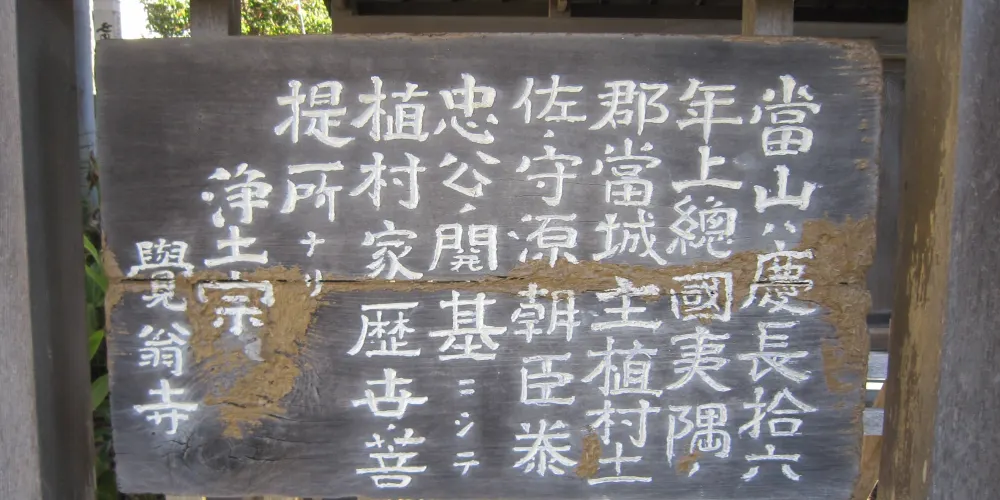 當山ハ慶長拾六
年上總國夷隅ノ
郡當城主植村土
佐ノ守源朝臣泰
忠公ノ開基ニシテ
植村家歴卋菩
提所ナリ
浄土宗
覺翁寺